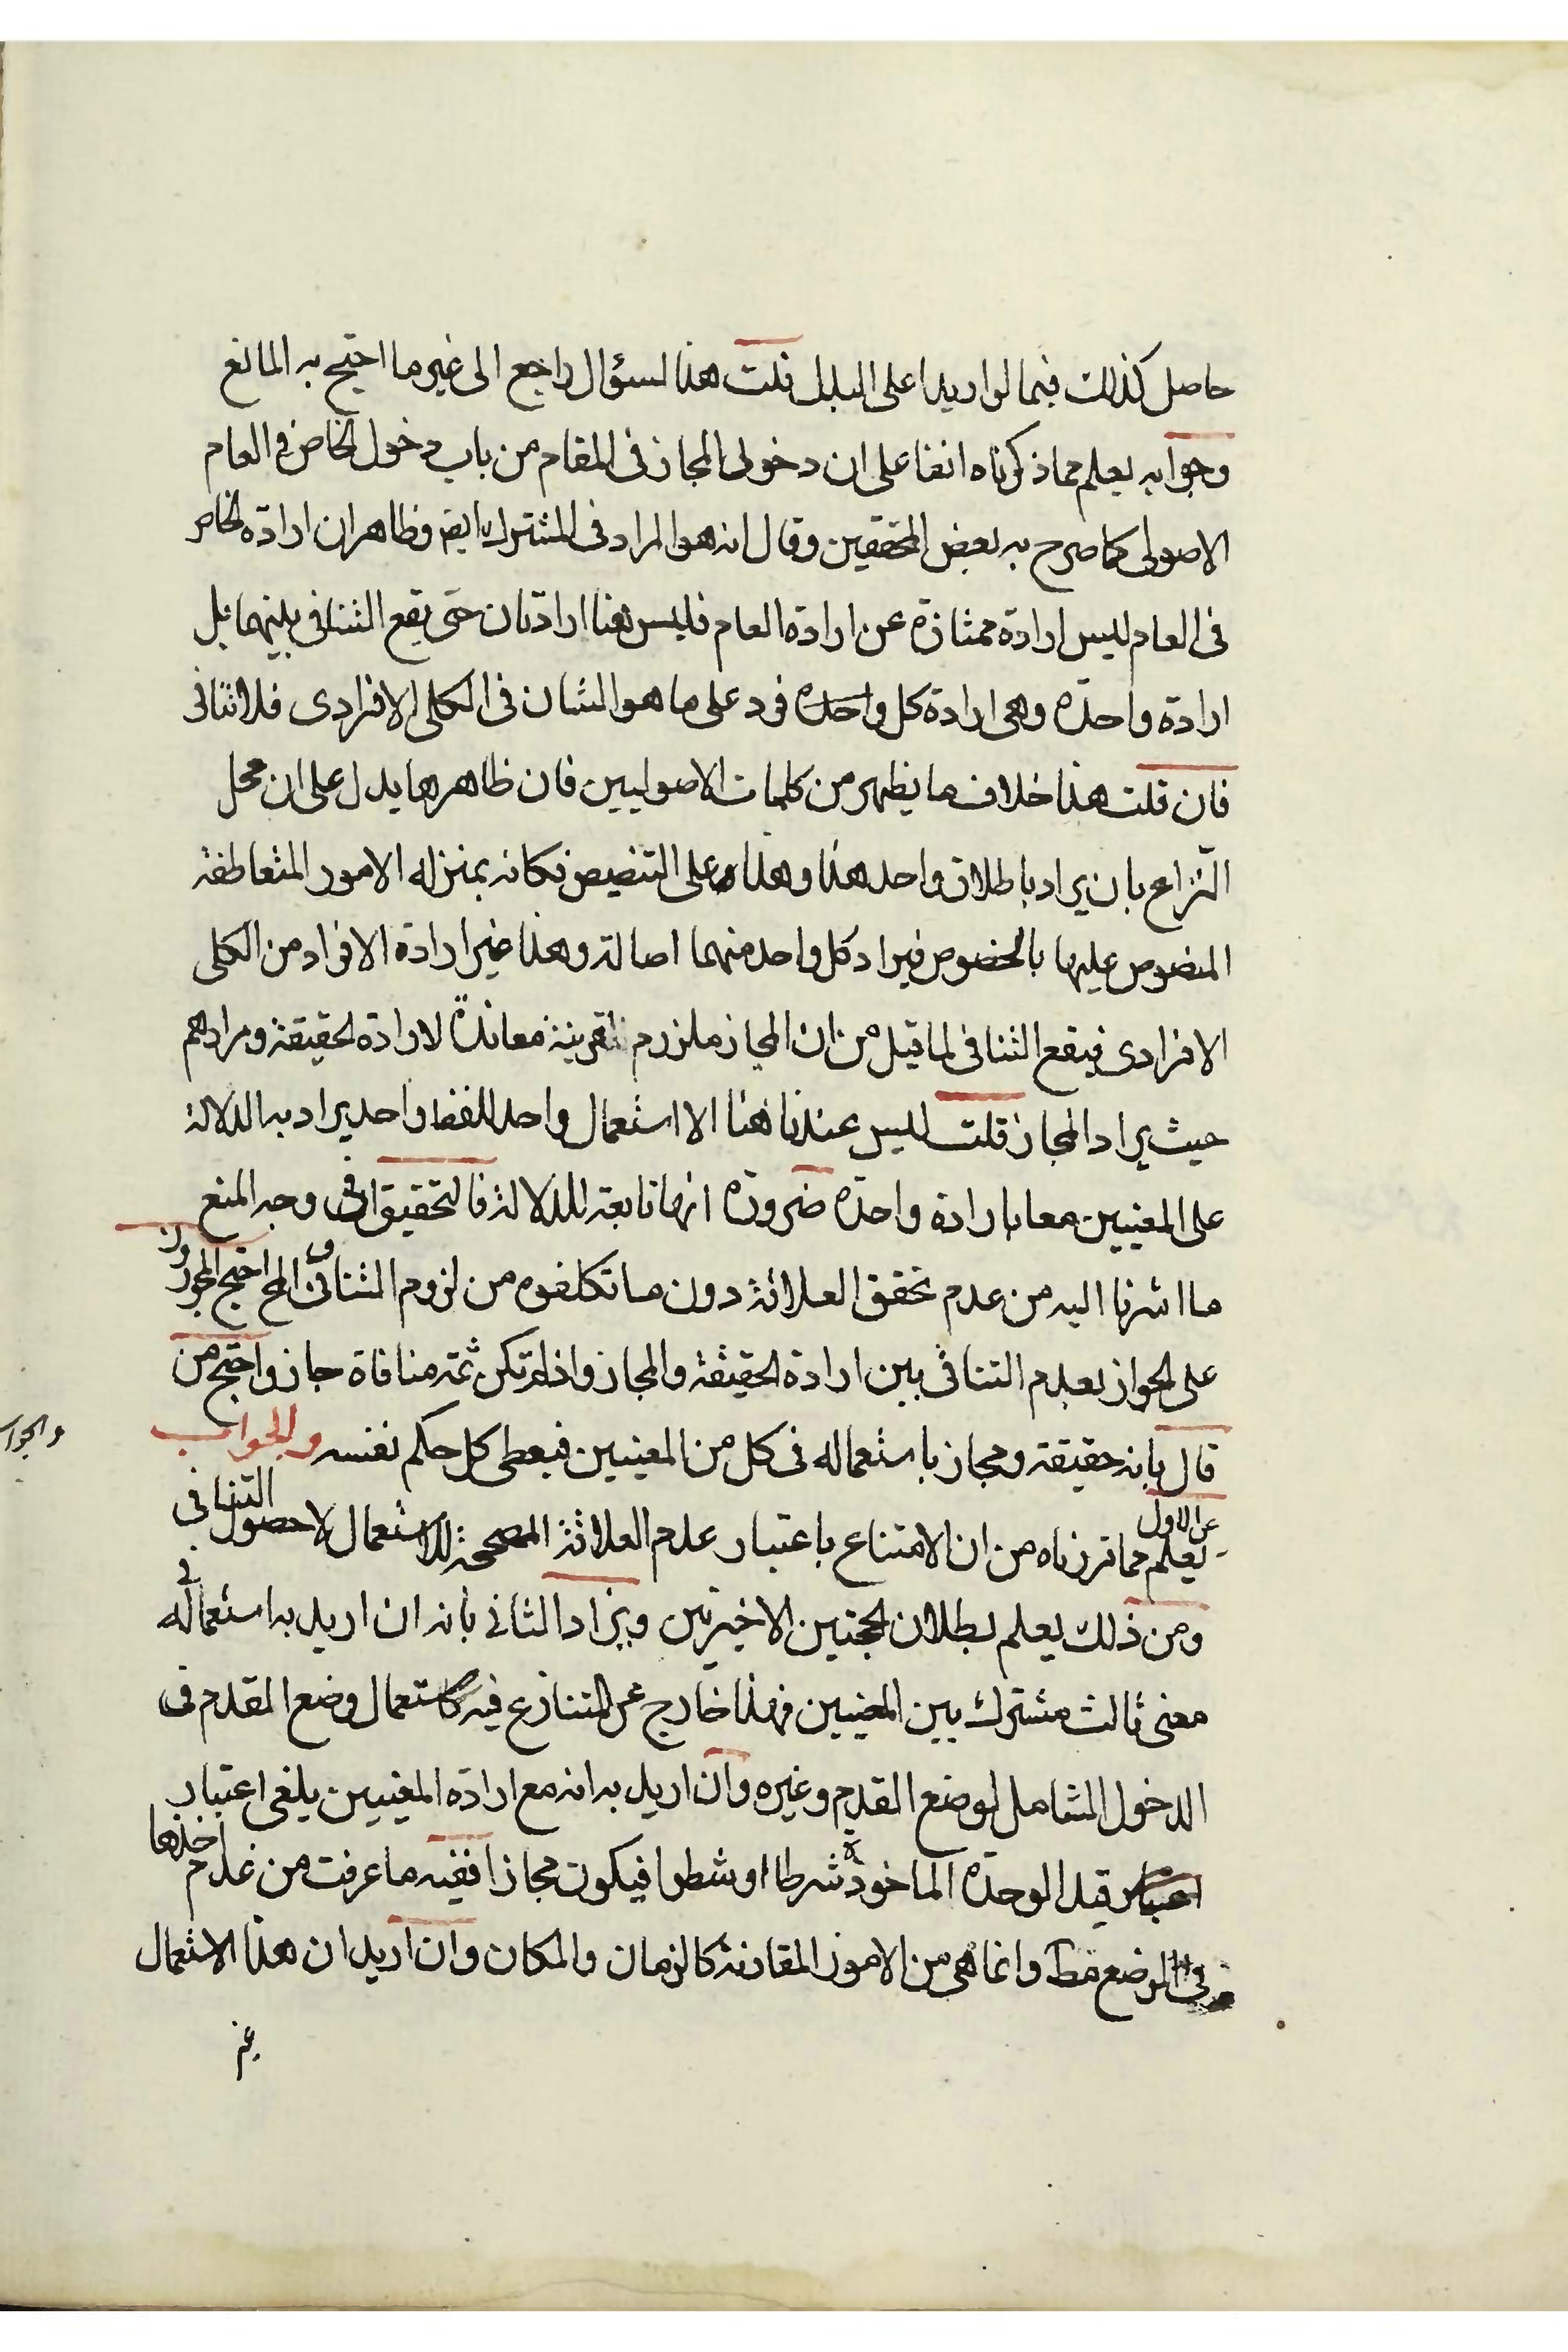 حاصل كذلك فيما لو اريدا على البدل قلت هذا لسؤال راجع الى غير ما احتج به المانع
وجوابه يعلم مما ذكرناه انفا على ان دخولى المجاز فى المقام من باب دخول الخاص فى العام
الاصولى كما صرح به بعض المحققين وقال انه هو المراد فى المشترك ايضا وظاهر ان ارادة الخاص
فى العام ليس ارادة ممتازة عن ارادة العام فليس هنا ارادتان حتى يقع التنافى بينهما بل
ارادة واحدة وهى ارادة كل واحد فرد على ما هو الشان فى الكلى الافرادى فلا تنافى
فان قلت هذا خلاف ما يظهر من كلمات الاصوليين فان ظاهرها يدل على ان محل
النزاع بان يراد باطلاق واحد هذا وهذا على التنصيص فكانه بمنزله الامور المتعاطفة
المنصوص عليها بالخصوص فيراد كل واحد منهما اصالة وهذا غير ارادة الافراد من الكلى
الافرادى فيقع التنافى لما قيل من ان المجاز ملزوم لقرينة معاندة لارادة الحقيقة ومرادهم
حيث يراد المجاز قلت ليس عندنا هنا الا استعمال واحد للفظ واحد يراد به الدلالة
على المعنيين معا بارادة واحدة ضرورة انها تابعة للدلالة فالتحقيق فى وجه المنع
ما اشرنا اليه من عدم تحقق العلاقة دون ما تكلفوه من لزوم التنافى الخ احتج المجوزون
على الجواز بعدم التنافى بين ارادة الحقيقة والمجاز واذا لم تكن ثمة منافاة جاز واحتج من
قال بانه حقيقة ومجاز باستعماله فى كل من المعنيين فيعطى كل حكم نفسه والجواب
والجواب
عن الاول يعلم مما قررناه من ان الامتناع باعتبار عدم العلاقة المصححة للاستعمال لا حصول التنافى
ومن ذلك يعلم بطلان الحجتين الاخيرتين ويزاد الثانى بانه ان اريد به استعماله فى
معنى ثالث مشترك بين المعنيين فهذا خارج عن المتنازع فيه كاستعمال وضع القدم فى
الدخول الشامل لوضع القدم وغيره وان اريد به انه مع ارادة المعنيين يلغى اعتبار
قيد الوحدة الماخوذة شرطا او شطرا فيكون مجازا ففيه ما عرفت من عدم اخذها
فى الوضع قط وانما هى من الامور المقارنة كالزمان والمكان وان اريد ان هذا الاستعمال